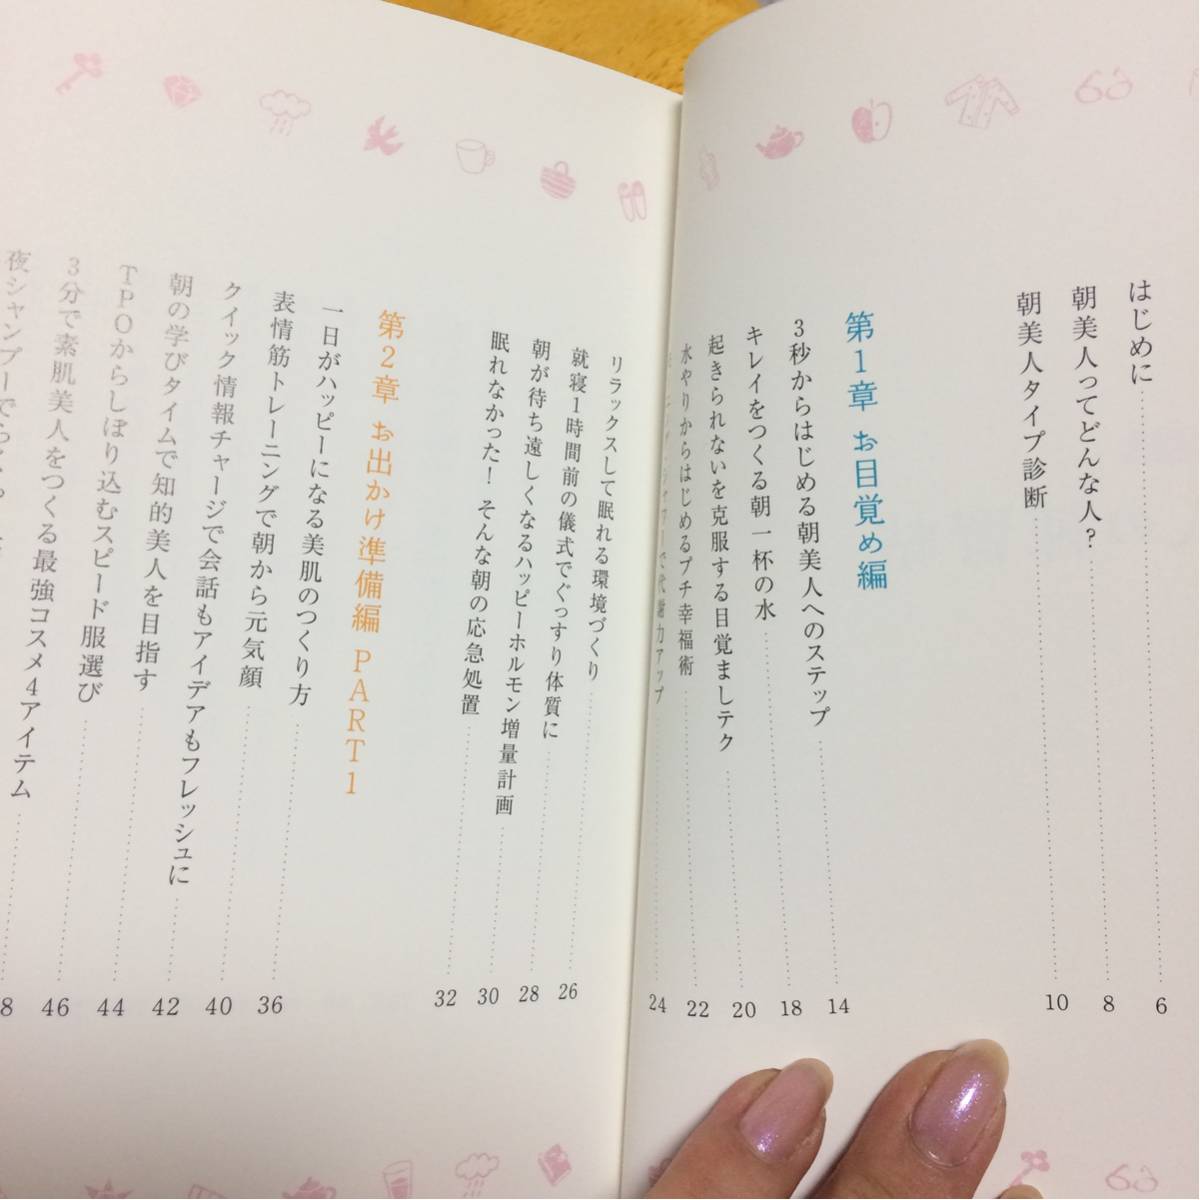 はじめに 6
朝美人ってどんな人? 8
朝美人タイプ診断 10
第1章 お目覚め編
3秒からはじめる朝美人へのステップ 14
キレイをつくる朝一杯の水 18
起きられないを克服する目覚ましテク 20
水やりからはじめるプチ幸福術 22
シャワーで代謝力アップ 24
リラックスして眠れる環境づくり 26
就寝1時間前の儀式でぐっすり体質に 28
朝が待ち遠しくなるハッピーホルモン増量計画 30
眠れなかった! そんな朝の応急処置 32
第2章 お出かけ準備編 PART1
一日がハッピーになる美肌のつくり方 36
表情筋トレーニングで朝から元気顔 40
クイック情報チャージで会話もアイデアもフレッシュに 42
朝の学びタイムで知的美人を目指す 44
TPOからしぼり込むスピード服選び 46
3分で素肌美人をつくる最強コスメ4アイテム 8
夜シャンプーで